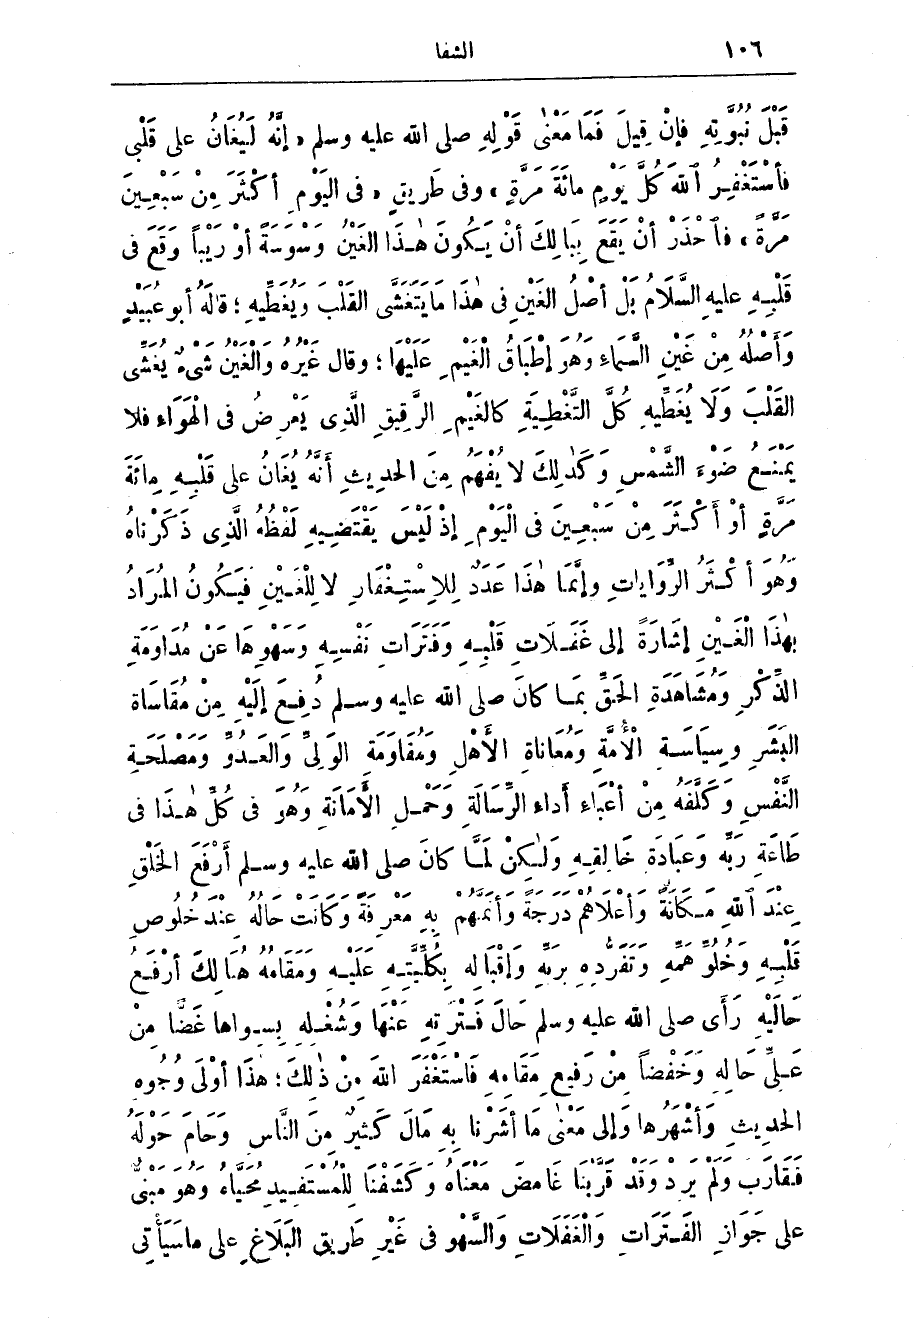 ١٠٦ الشفا
قَبْلَ نُبُوَّتِهِ فَإِنْ قِيلَ فَمَا مَعْنٰى قَوْلِهِ صلى الله عليه وسلم «إِنَّهُ لَيُغَانُ على قَلْبِى
فَأَسْتَغْفِرُ ٱللهَ كُلَّ يَوْمٍ مائَةَ مَرَّةٍ» وفى طَرِيقٍ «فى اليَوْمِ أكْثَرَ مِنْ سَبْعِينَ
مَرَّةً» فَٱحْذَرْ أنْ يَقَعَ بِبَالِكَ أنْ يَكُونَ هٰذَا الغَيْنُ وَسْوَسَةً أوْ رَيْبًا وَقَعَ فى
قَلْبِهِ عليهِ السَّلَامُ بَلْ أصْلُ الغَيْنِ فى هٰذَا مَا يَتَغَشَّى القَلْبَ وَيُغَطِّيهِ ؛ قالَهُ أبو عبَيْدٍ
وَأَصْلُهُ مِنْ غَيْنِ السَّمَاءِ وَهُوَ إِطْبَاقُ الْغَيْمِ عَلَيْهَا ؛ وقال غَيْرُهُ وَالْغَيْنُ شَىْءٌ يُغَشِّى
القَلْبَ وَلَا يُغَطِّيهِ كُلَّ التَّغْطِيَةِ كالغَيْمِ الرَّقِيقِ الَّذِى يَعْرِضُ فى الْهَوَاءِ فلا
يَمْنَعُ ضَوْءَ الشَّمْسِ وَكَذٰلِكَ لا يُفْهَمُ مِنَ الحَدِيثِ أَنَّهُ يُغَانُ على قَلْبِهِ مِائَةَ
مَرَّةٍ أوْ أَكْثَرَ مِنْ سَبْعِينَ فى الْيَوْمِ إذْ لَيْسَ يَقْتَضِيهِ لَفْظُهُ الَّذِى ذَكَرْناهُ
وَهُوَ أكْثَرُ الرِّوَايَاتِ وإنَّمَا هٰذَا عَدَدٌ لِلاِسْتِغْفَارِ لا لِلْغَيْنِ فَيَكُونُ المُرَادُ
بِهٰذَا الْغَيْنِ إشَارَةً إلى غَفَلَاتِ قَلْبِهِ وَفَتَرَاتِ نَفْسِهِ وَسَهْوِهَا عَنْ مُدَاوَمَةِ
الذِّكْرِ وَمُشَاهَدَةِ الحَقِّ بِمَا كانَ صلى الله عليه وسلم دُفِعَ إِلَيْهِ مِنْ مُقَاسَاةِ
البَشَرِ وسِيَاسَةِ الْأُمَّةِ وَمُعَاناةِ الأَهْلِ وَمُقَاوَمَةِ الوَلِىِّ وَالعَدُوِّ وَمَصْلَحَةِ
النَّفْسِ وَكُلِّفَهُ مِنْ أعْبَاءِ أَداءِ الرِّسَالَةِ وَحَمْلِ الأَمَانَةِ وَهُوَ فى كُلِّ هٰذَا فى
طَاعَةِ رَبِّهِ وَعِبَادَةِ خَالِقِهِ وَلٰكِنْ لَمَّا كانَ صلى الله عليه وسلم أَرْفَعَ الخَلْقِ
عِنْدَ ٱللهِ مَكَانَةً وَأَعْلَاهُمْ دَرَجَةً وَأَتَمَّهُمْ بِهِ مَعْرِفَةً وَكَانَتْ حَالُهُ عِنْدَ خُلُوصِ
قَلْبِهِ وَخُلُوِّ هَمِّهِ وَتَفَرُّدِهِ بِرَبِّهِ وَإقْبَالِهِ بِكُلِّيَّتِهِ عَلَيْهِ وَمَقَامُهُ هُنَالِكَ أرْفَعُ
حَالَيْهِ رَأَى صلى الله عليه وسلم حَالَ فَتْرَتِهِ عَنْهَا وَشُغْلِهِ بِسِواها غَضًّا مِنْ
عَلِىِّ حَالِهِ وَخَفْضاً مِنْ رَفِيعِ مَقَامِهِ فَاسْتَغْفَرَ اللهَ مِنْ ذٰلِكَ ؛ هٰذَا أوْلَى وُجُوهِ
الحَدِيثِ وَأَشْهَرُها وَإلى مَعْنٰى مَا أشَرْنا بِهِ مَالَ كَثِيرٌ مِنَ النَّاسِ وَحَامَ حَوْلَهُ
فَقَارَبَ وَلَمْ يَرِدْ وَقَدْ قَرَّبْنَا غَامِضَ مَعْنَاهُ وَكَشَفْنَا لِلْمُسْتَفِيدِ مُحَيَّاهُ وَهُوَ مَبْنِىٌّ
على جَوَازِ الفَتَرَاتِ وَالْغَفَلَاتِ وَالسَّهْوِ فى غَيْرِ طَرِيقِ البَلَاغِ على ما سَيَأْتِى